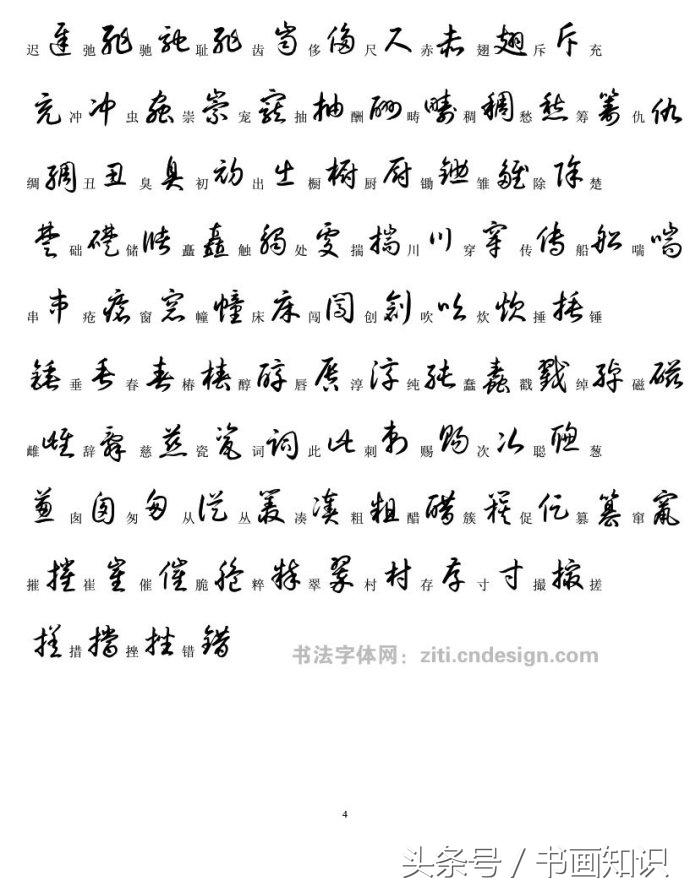 迟 遲 弛 弛 驰 馳 耻 耻 齿 齒 侈 侈 尺 尺 赤 赤 翅 翅 斥 斥 充
充 冲 冲 虫 蟲 崇 崇 宠 寵 抽 抽 酬 酬 畴 疇 稠 稠 愁 愁 筹 籌 仇 仇
绸 綢 丑 丑 臭 臭 初 初 出 出 橱 橱 厨 厨 锄 鋤 雏 雛 除 除 楚
楚 础 礎 储 儲 矗 矗 触 觸 处 處 揣 揣 川 川 穿 穿 传 傳 船 船 喘 喘
串 串 疮 瘡 窗 窓 幢 幢 床 床 闯 闖 创 創 吹 吹 炊 炊 捶 捶 锤
錘 垂 垂 春 春 椿 椿 醇 醇 唇 唇 淳 淳 纯 純 蠢 蠢 戳 戳 绰 綽 磁 磁
雌 雌 辞 辭 慈 慈 瓷 瓷 词 詞 此 此 刺 刺 赐 賜 次 次 聪 聰 葱
蔥 囱 囱 匆 匆 从 從 丛 叢 凑 凑 粗 粗 醋 醋 簇 簇 促 促 篡 篡 窜 竄
摧 摧 崔 崔 催 催 脆 脆 粹 粹 翠 翠 村 村 存 存 寸 寸 撮 撮 搓
搓 措 措 挫 挫 错 錯 书法字体网：ziti.cndesign.com
4
头条号 / 书画知识